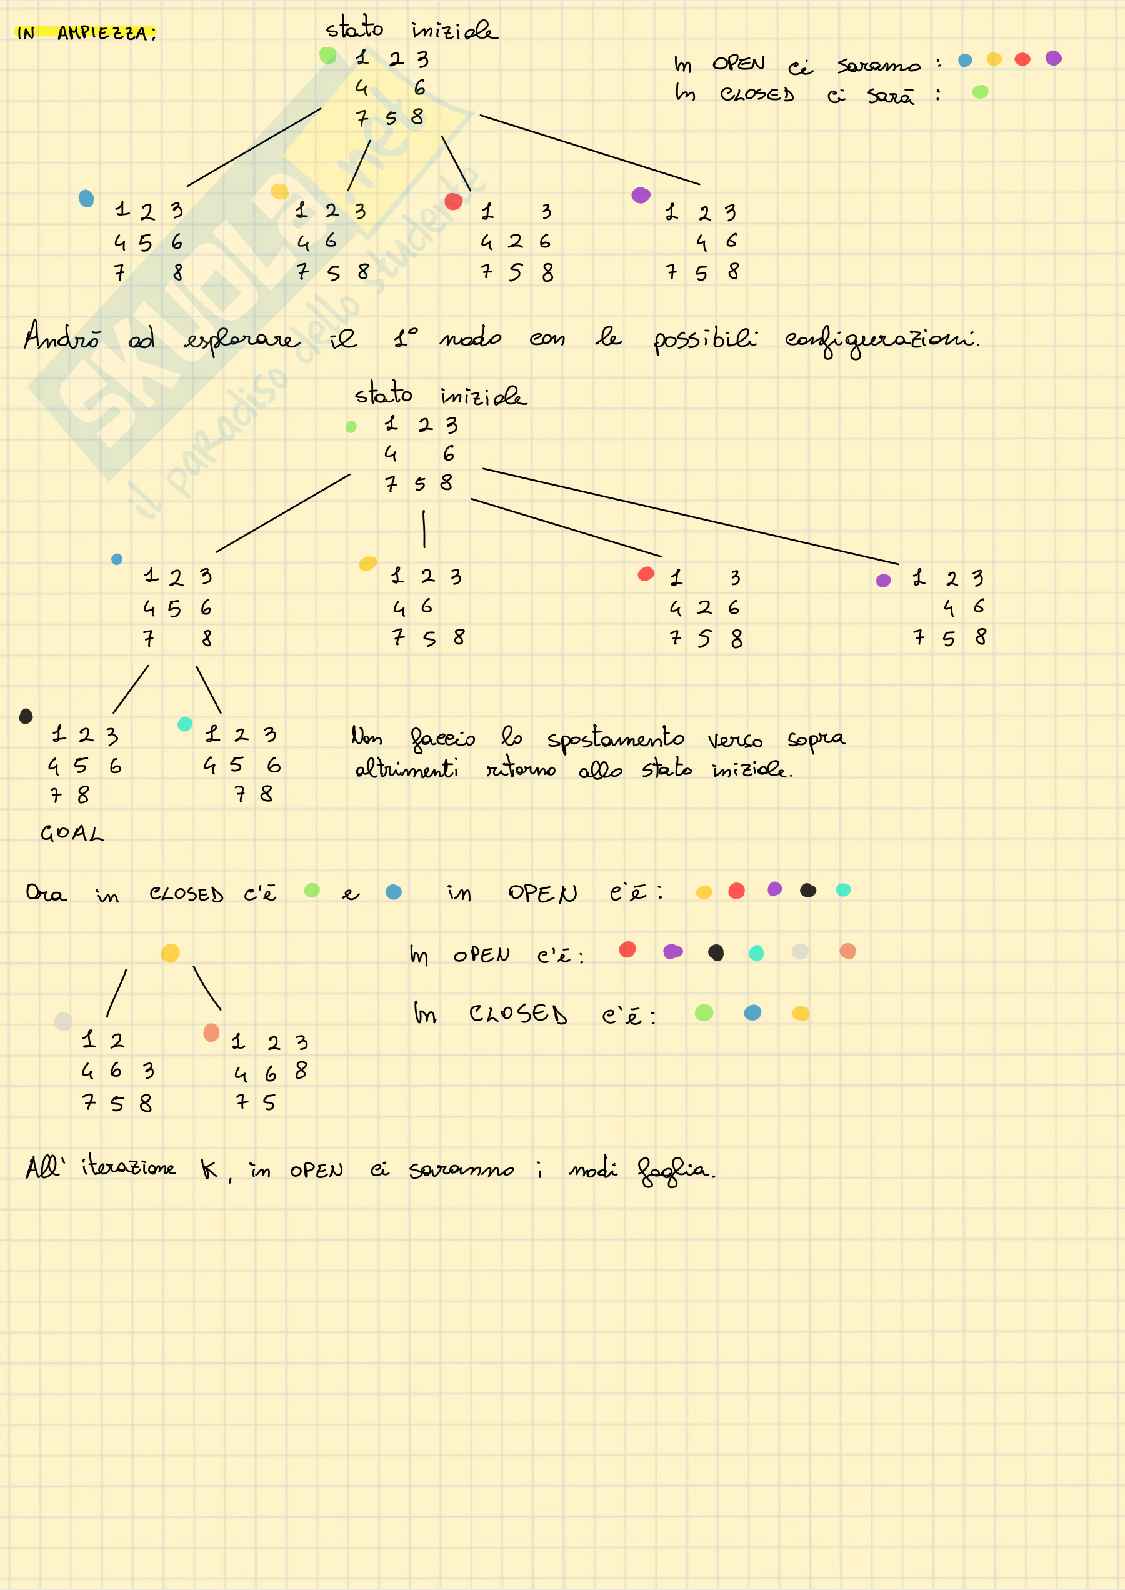 IN AMPIEZZA:
stato iniziale
1 2 3
4 6
7 5 8
In OPEN ci saranno:
In CLOSED ci sarà:
1 2 3
4 5 6
7 8
1 2 3
4 6
7 5 8
1 3
4 2 6
7 5 8
1 2 3
4 6
7 5 8
Andrò ad esplorare il 1° nodo con le possibili configurazioni.
stato iniziale
1 2 3
4 6
7 5 8
1 2 3
4 5 6
7 8
1 2 3
4 6
7 5 8
1 3
4 2 6
7 5 8
1 2 3
4 6
7 5 8
1 2 3
4 5 6
7 8
GOAL
1 2 3
4 5 6
7 8
Non faccio lo spostamento verso sopra
altrimenti ritorno allo stato iniziale.
Ora in CLOSED c'è e in OPEN c'è:
In OPEN c'è:
In CLOSED c'è:
1 2
4 6 3
7 5 8
1 2 3
4 6 8
7 5
All' iterazione K, in OPEN ci saranno i nodi foglia.
SKUOLA.net
il paradiso dello studente